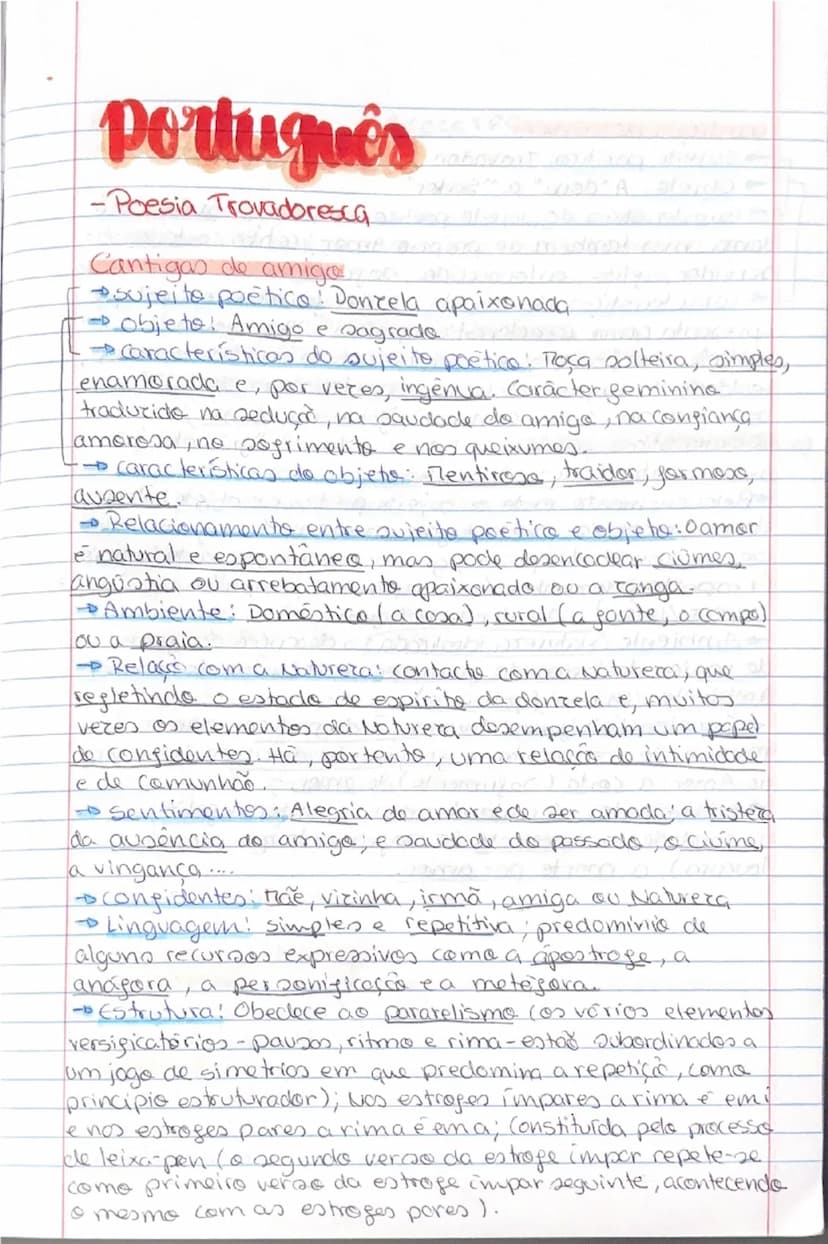 Português
- Poesia Trovadoresca
Cantigas de amigo
→ sujeito poético: Donzela apaixonada
→ objeto: Amigo e sagrado
→ características do sujeito poético: Moça solteira, simples,
enamorada e, por vezes, ingénua. Carácter feminino
traduzido na sedução, na saudade do amigo, na confiança
amorosa, no sofrimento e nos queixumes.
→ características do objeto: Mentiroso, traidor, formoso,
ausente.
→ Relacionamento entre sujeito poético e objeto: O amor
é natural e espontâneo, mas pode desencadear ciúmes,
angústia ou arrebatamento apaixonado ou a zanga.
→ Ambiente: Doméstico (a casa), rural (a fonte, o campo)
ou a praia.
→ Relação com a Natureza: contacto com a Natureza, que
refletindo o estado de espírito da donzela e, muitos
vezes os elementos da Natureza desempenham um papel
de confidentes. Há, portento, uma relação de intimidade
e de comunhão.
→ Sentimentos: Alegria de amar e de ser amada; a tristeza
da ausência do amigo; e saudade do passado, o ciúme,
a vingança....
→ Confidentes: Mãe, vizinha, irmã, amiga ou Natureza
→ Linguagem: simples e repetitiva; predomínio de
alguns recursos expressivos como a apostrofe, a
anáfora, a personificação e a metáfora.
→ Estrutura: Obedece ao paralelismo (os vários elementos
versificatórios - pausas, ritmo e rima - estão subordinados a
um jogo de simetrias em que predomina a repetição, como
princípio estruturador); Nos estrofes ímpares a rima é em i
e nos estrofes pares a rima é em a; Constituída pelo processo
de leixa-pren (o segundo verso da estrofe ímpar repete-se
como primeiro verso da estrofe ímpar seguinte, acontecendo
o mesmo com as estrofes pares).